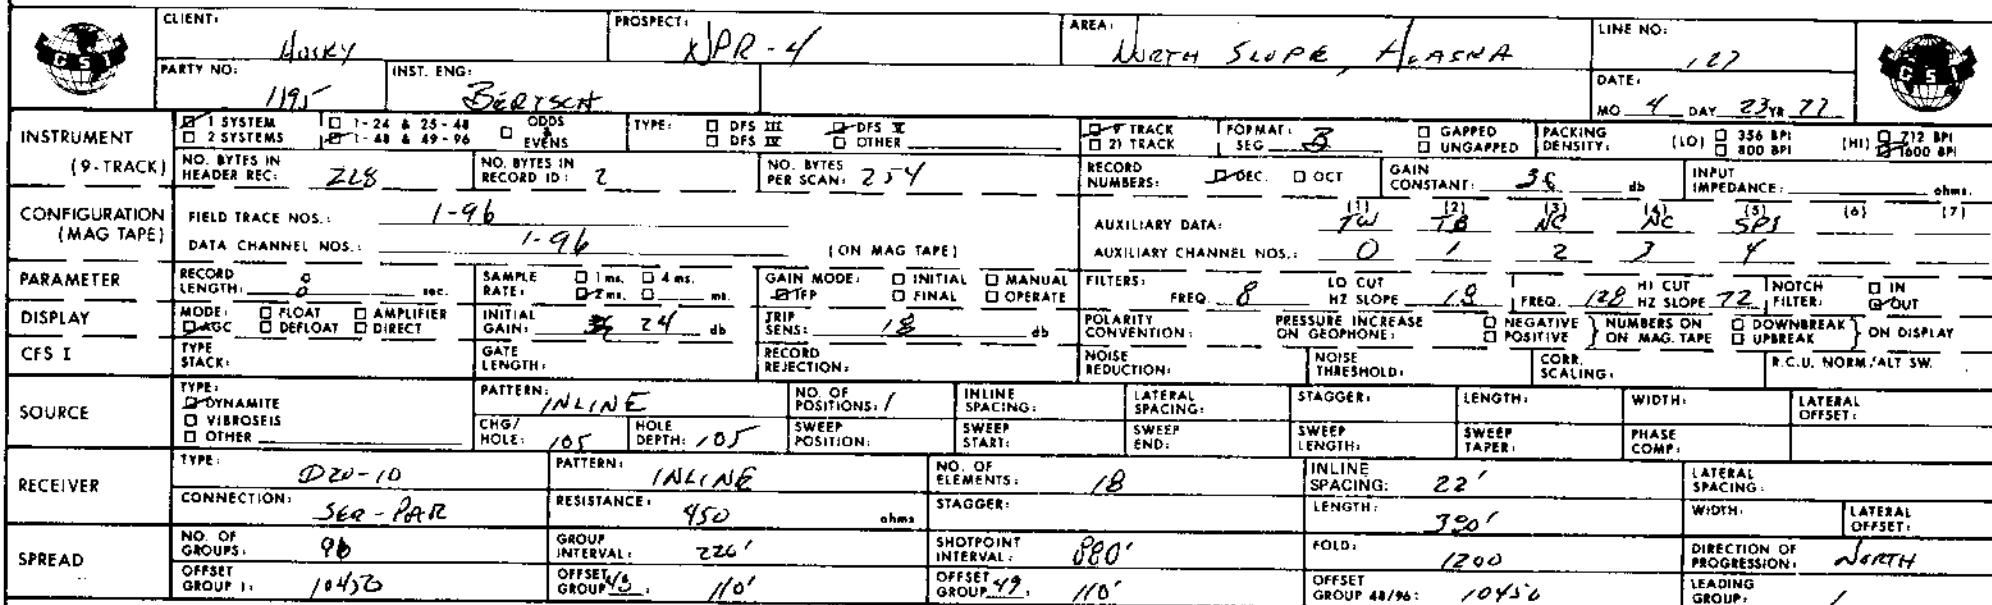 CLIENT: Husky PROSPECT: NPR-4 AREA: North Slope, Alaska LINE NO: 127
PARTY NO: 1195 INST. ENG: Bertsch DATE: MO 4 DAY 23 YR 77
GSI GSI
INSTRUMENT (9-TRACK)
1 SYSTEM 1-24 & 25-48 ODDS & EVENS TYPE: DFS III DFS V 9 TRACK FORMAT: SEG B GAPPED PACKING DENSITY: (LO) 356 BPI (HI) 712 BPI
2 SYSTEMS 1-48 & 49-96 DFS IV OTHER 21 TRACK UNGAPPED 800 BPI 1600 BPI
NO. BYTES IN HEADER REC: 228 NO. BYTES IN RECORD ID: 2 NO. BYTES PER SCAN: 254 RECORD NUMBERS: DEC. OCT GAIN CONSTANT: 36 db INPUT IMPEDANCE: ohms.
CONFIGURATION (MAG TAPE)
FIELD TRACE NOS.: 1-96 AUXILIARY DATA: (1) TW (2) TB (3) NC (4) NC (5) SPS (6) (7)
DATA CHANNEL NOS.: 1-96 (ON MAG TAPE) AUXILIARY CHANNEL NOS.: 0 1 2 3 4
PARAMETER RECORD LENGTH: 8 sec. SAMPLE RATE: 1 ms. 4 ms. 2 ms. ms. GAIN MODE: INITIAL MANUAL IFP FINAL OPERATE FILTERS: FREQ. 8 LO CUT HZ SLOPE 18 FREQ. 128 HI CUT HZ SLOPE 72 NOTCH FILTER: IN OUT
DISPLAY MODE: FLOAT AMPLIFIER AGC DEFLOAT DIRECT INITIAL GAIN: 24 db TRIP SENS: 18 db POLARITY CONVENTION: PRESSURE INCREASE ON GEOPHONE: NEGATIVE POSITIVE } NUMBERS ON ON MAG. TAPE DOWNBREAK UPBREAK } ON DISPLAY
CFS I TYPE STACK: GATE LENGTH: RECORD REJECTION: NOISE REDUCTION: NOISE THRESHOLD: CORR. SCALING: R.C.U. NORM./ALT SW.
SOURCE TYPE: DYNAMITE VIBROSEIS OTHER
PATTERN: INLINE NO. OF POSITIONS: 1 INLINE SPACING: LATERAL SPACING: STAGGER: LENGTH: WIDTH: LATERAL OFFSET:
CHG/HOLE: 105 HOLE DEPTH: 105 SWEEP POSITION: SWEEP START: SWEEP END: SWEEP LENGTH: SWEEP TAPER: PHASE COMP:
RECEIVER TYPE: D20-10 PATTERN: INLINE NO. OF ELEMENTS: 18 INLINE SPACING: 22' LATERAL SPACING:
CONNECTION: SER-PAR RESISTANCE: 450 ohms STAGGER: LENGTH: 390' WIDTH: LATERAL OFFSET:
SPREAD NO. OF GROUPS: 96 GROUP INTERVAL: 220' SHOTPOINT INTERVAL: 880' FOLD: 1200 DIRECTION OF PROGRESSION: NORTH
OFFSET GROUP 1: 10450 OFFSET GROUP 48: 110' OFFSET GROUP 49: 110' OFFSET GROUP 48/96: 10450 LEADING GROUP: 1